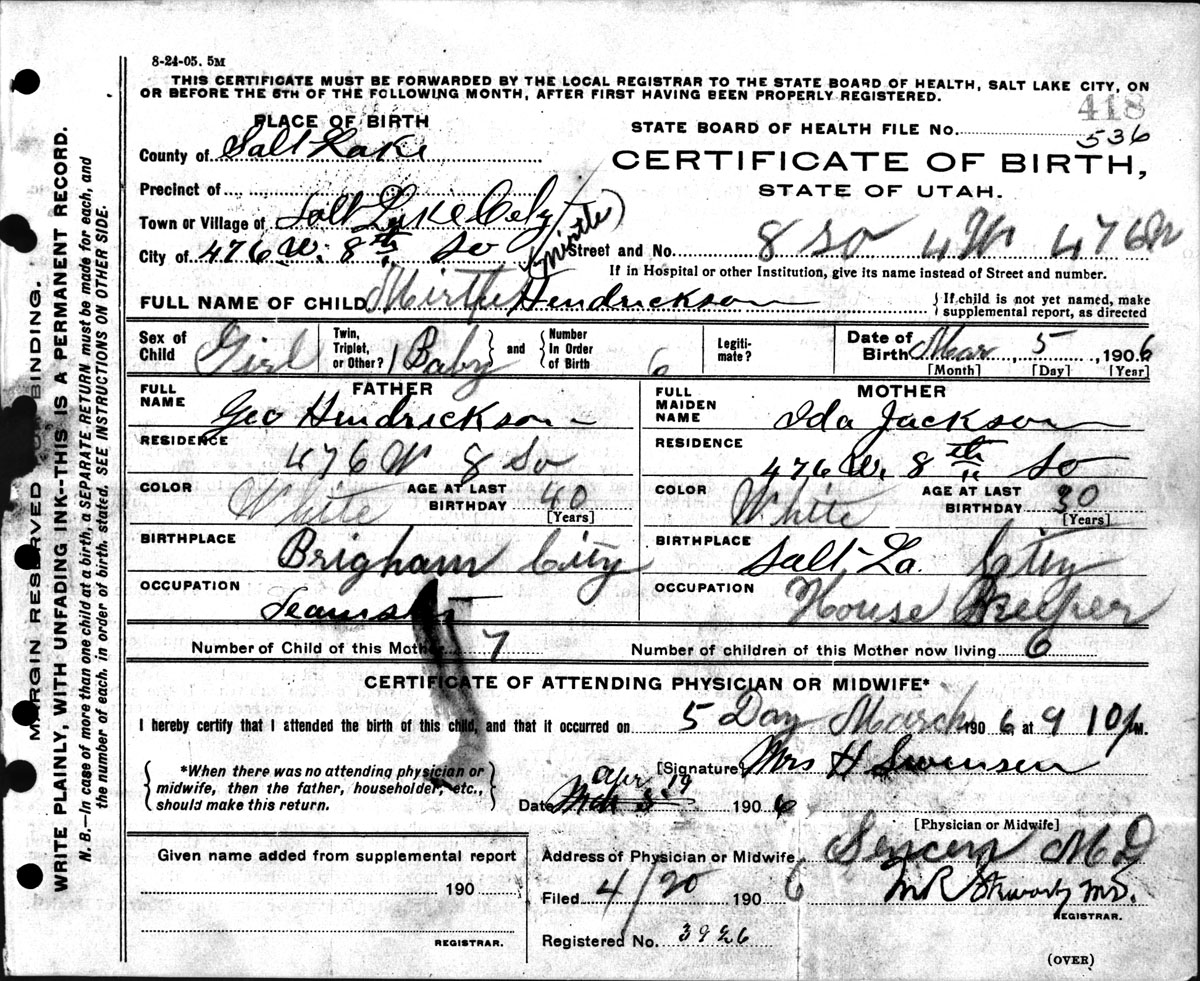 8-24-05. 5M
THIS CERTIFICATE MUST BE FORWARDED BY THE LOCAL REGISTRAR TO THE STATE BOARD OF HEALTH, SALT LAKE CITY, ON
OR BEFORE THE 5TH OF THE FOLLOWING MONTH, AFTER FIRST HAVING BEEN PROPERLY REGISTERED.
418
PLACE OF BIRTH
STATE BOARD OF HEALTH FILE No. 536
County of Salt Lake
CERTIFICATE OF BIRTH,
Precinct of
STATE OF UTAH.
Town or Village of Salt Lake City
(Mirtle)
City of 476 W. 8th So Street and No. 8 So 4 W 476
If in Hospital or other Institution, give its name instead of Street and number.
FULL NAME OF CHILD Mirtle Hendrickson { If child is not yet named, make
supplemental report, as directed
Sex of Child Girl Twin, Triplet, or Other? 1 Baby } and { Number In Order of Birth 6 Legiti-mate? Date of Birth Mar 5 1906
[Month] [Day] [Year]
FATHER MOTHER
FULL NAME Geo Hendrickson FULL MAIDEN NAME Ida Jackson
RESIDENCE 476 W 8 So RESIDENCE 476 W. 8th So
COLOR White AGE AT LAST BIRTHDAY 40 [Years] COLOR White AGE AT LAST BIRTHDAY 30 [Years]
BIRTHPLACE Brigham City BIRTHPLACE Salt La. City
OCCUPATION Teamster OCCUPATION House Keeper
Number of Child of this Mother 7 Number of children of this Mother now living 6
CERTIFICATE OF ATTENDING PHYSICIAN OR MIDWIFE*
I hereby certify that I attended the birth of this child, and that it occurred on 5 Day March 1906 at 9 10 p M.
{ *When there was no attending physician or
midwife, then the father, householder, etc.,
should make this return. }
[Signature] Mrs H Swensen
Date Apr 19 1906
[Physician or Midwife]
Given name added from supplemental report
Address of Physician or Midwife M D
190
Filed 4/20 1906
REGISTRAR.
REGISTRAR.
Registered No. 3926
(OVER)
MARGIN RESERVED FOR BINDING.
WRITE PLAINLY, WITH UNFADING INK--THIS IS A PERMANENT RECORD.
N. B.—In case of more than one child at a birth, a SEPARATE RETURN must be made for each, and
the number of each, in order of birth, stated. SEE INSTRUCTIONS ON OTHER SIDE.